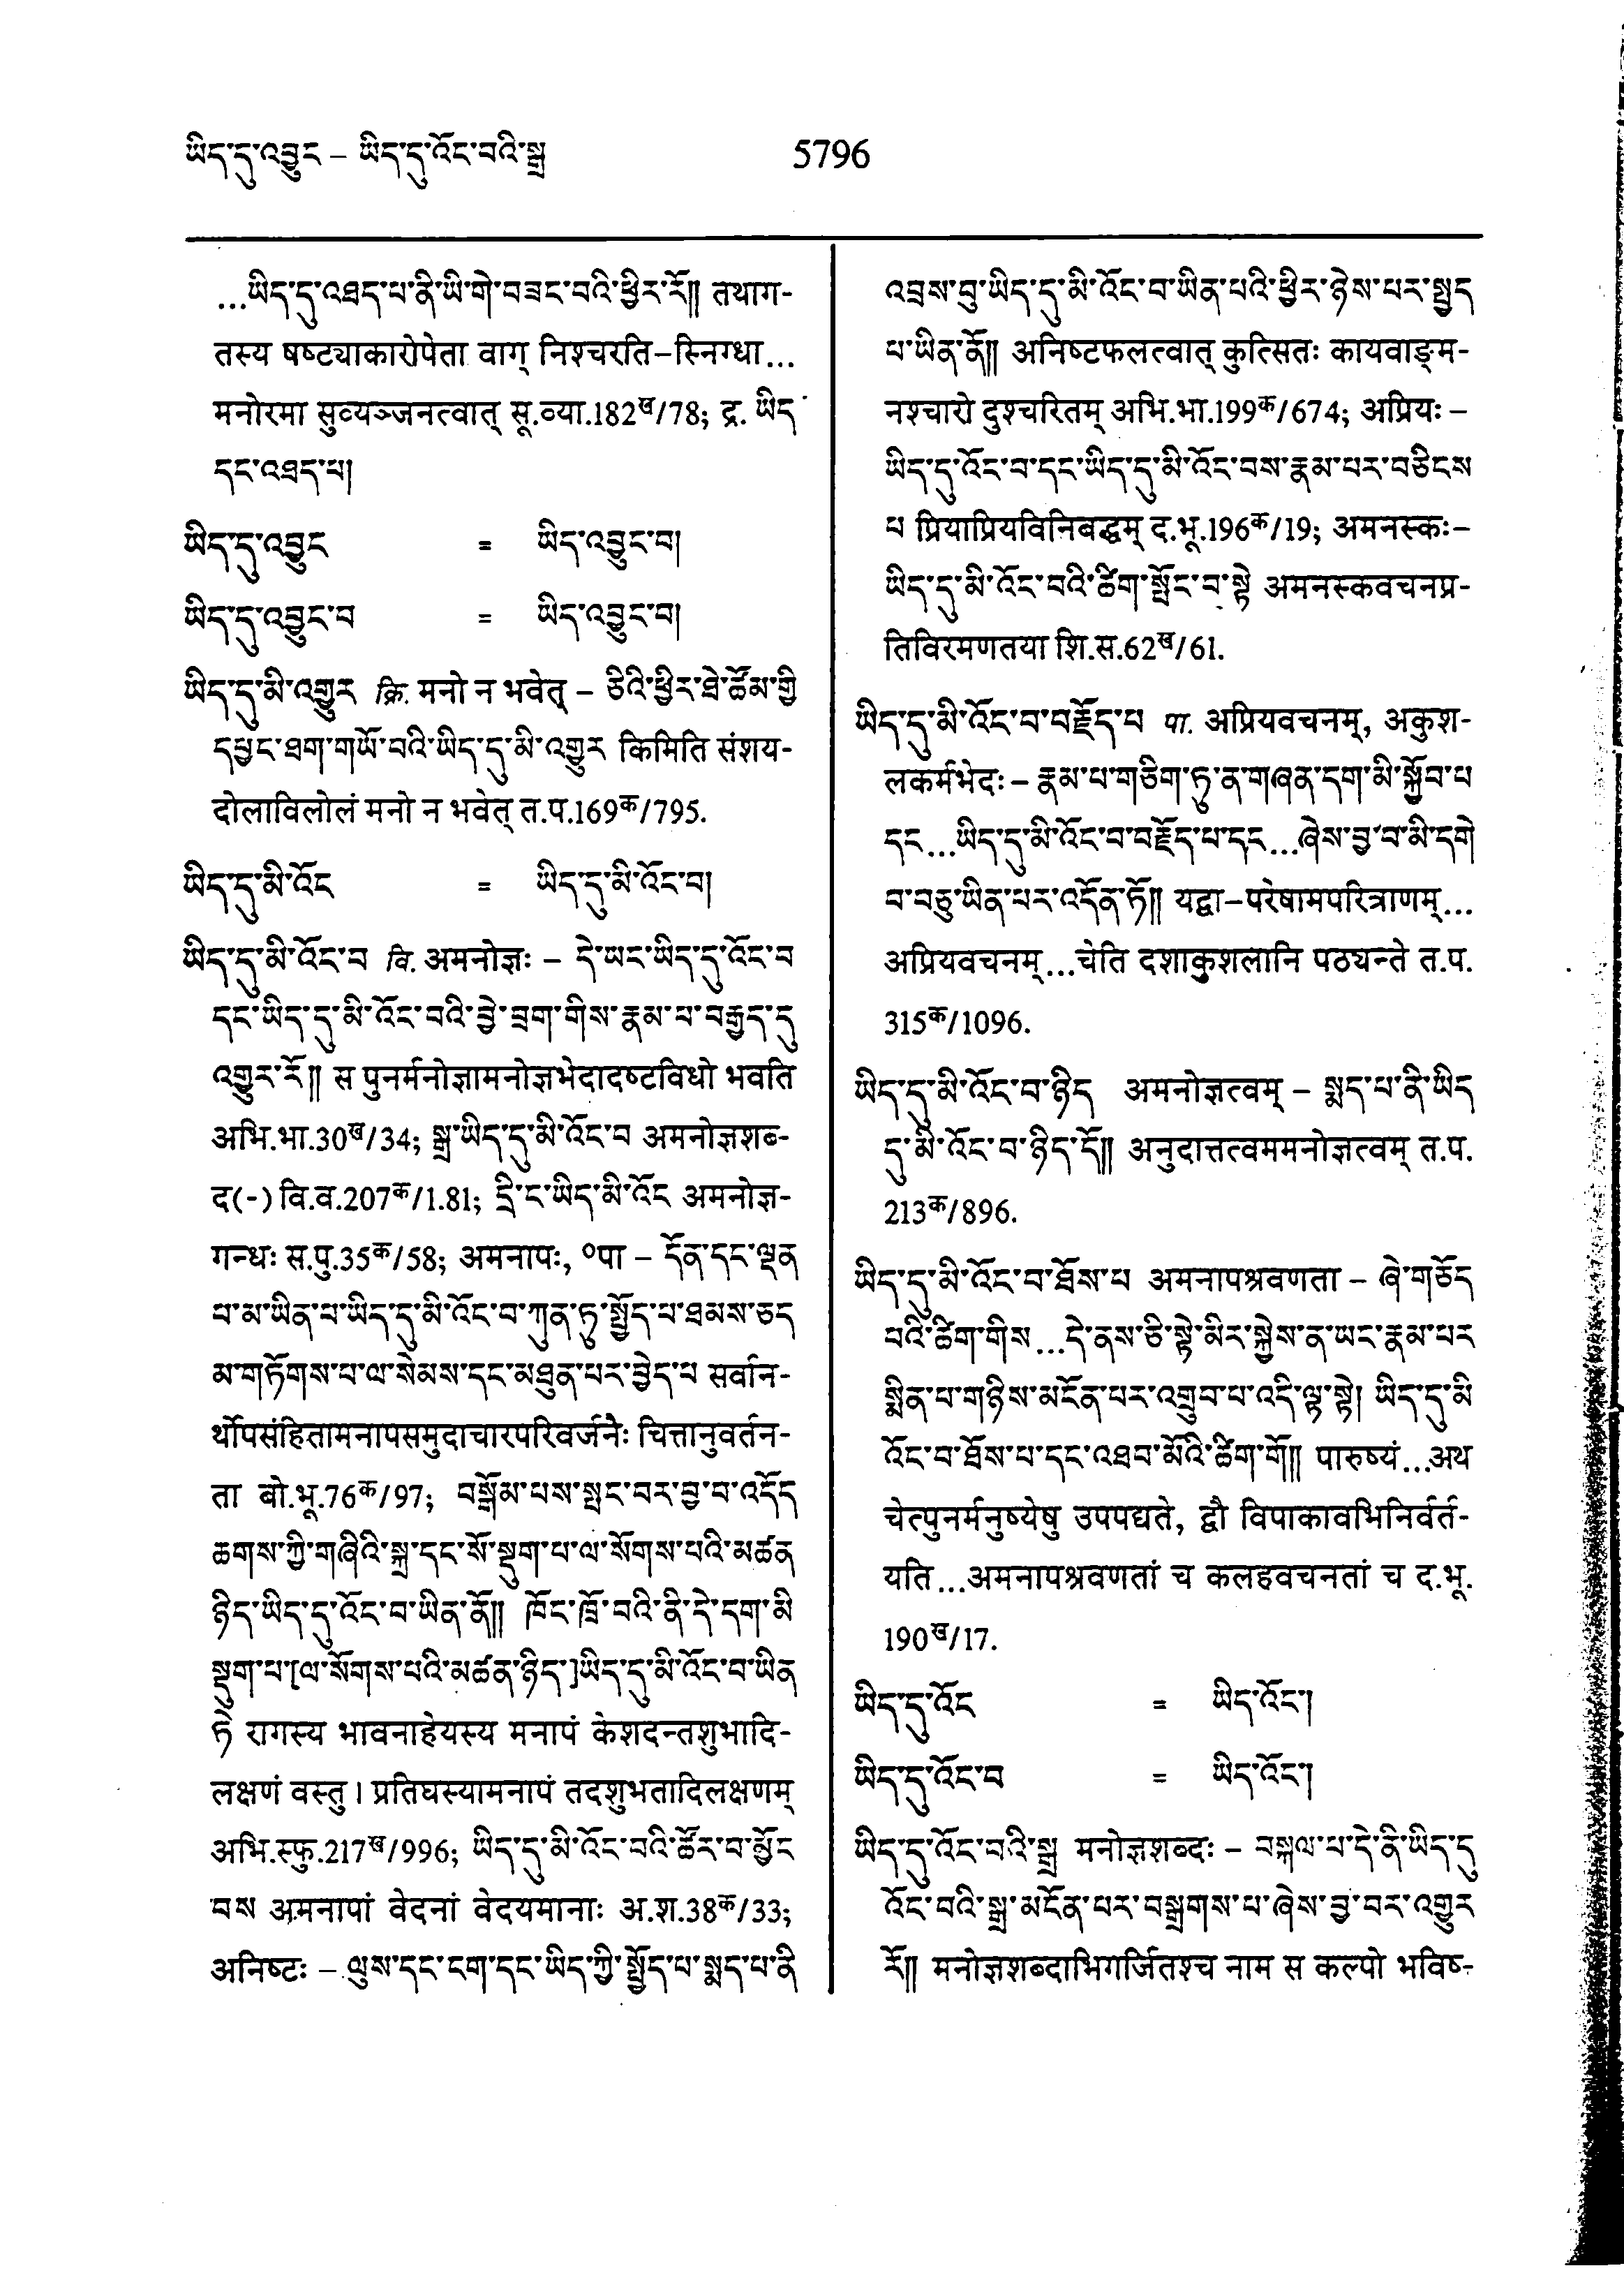 ཡིད་དུ་འབྱུང – ཡིད་དུ་འོང་བའི་སྒྲ
5796
...ཡིད་དུ་འཐད་པ་ནི་ཡི་གེ་བཟང་བའི་ཕྱིར་རོ།། तथाग-
तस्य षष्ट्याकारोपेता वाग् निश्चरति-स्निग्धा...
मनोरमा सुव्यञ्जनत्वात् सू.व्या.182ख/78; द्र. ཡིད་
དང་འཐད་པ།
ཡིད་དུ་འབྱུང = ཡིད་འབྱུང་བ།
ཡིད་དུ་འབྱུང་བ = ཡིད་འབྱུང་བ།
ཡིད་དུ་མི་འགྱུར क्रि. मनो न भवेत् – ཅིའི་ཕྱིར་ཐེ་ཚོམ་གྱི
དཔྱང་ཐག་གཡོ་བའི་ཡིད་དུ་མི་འགྱུར किमिति संशय-
दोलाविलोलं मनो न भवेत् त.प.169क/795.
ཡིད་དུ་མི་འོང = ཡིད་དུ་མི་འོང་བ།
ཡིད་དུ་མི་འོང་བ वि. अमनोज्ञः – དེ་ཡང་ཡིད་དུ་འོང་བ
དང་ཡིད་དུ་མི་འོང་བའི་བྱེ་བྲག་གིས་རྣམ་པ་བརྒྱད་དུ
འགྱུར་རོ།། स पुनर्मनोज्ञामनोज्ञभेदादष्टविधो भवति
अभि.भा.30ख/34; སྒྲ་ཡིད་དུ་མི་འོང་བ अमनोज्ञशब्-
द(-) वि.व.207क/1.81; དྲི་ང་ཡིད་མི་འོང अमनोज्ञ-
गन्धः स.पु.35क/58; अमनापः, ०पा – དོན་དང་ལྡན
པ་མ་ཡིན་པ་ཡིད་དུ་མི་འོང་བ་ཀུན་ཏུ་སྤྱོད་པ་ཐམས་ཅད
མ་གཏོགས་པ་ལ་སེམས་དང་མཐུན་པར་བྱེད་པ सर्वान-
र्थोपसंहितामनापसमुदाचारपरिवर्जनैः चित्तानुवर्तन-
ता बो.भू.76क/97; བསྒོམ་པས་སྤང་བར་བྱ་བ་འདོད
ཆགས་ཀྱི་གཞིའི་སྐྲ་དང་སོ་སྡུག་པ་ལ་སོགས་པའི་མཚན
ཉིད་ཡིད་དུ་འོང་བ་ཡིན་ནོ།། ཁོང་ཁྲོ་བའི་ནི་དེ་དག་མི
སྡུག་པ་[ལ་སོགས་པའི་མཚན་ཉིད་]ཡིད་དུ་མི་འོང་བ་ཡིན
ཏེ रागस्य भावनाहेयस्य मनापं केशदन्तशुभादि-
लक्षणं वस्तु। प्रतिघस्यामनापं तदशुभतादिलक्षणम्
अभि.स्फु.217ख/996; ཡིད་དུ་མི་འོང་བའི་ཚོར་བ་མྱོང
བས अमनापां वेदनां वेदयमानाः अ.श.38क/33;
अनिष्टः – ལུས་དང་ངག་དང་ཡིད་ཀྱི་སྤྱོད་པ་སྨད་པ་ནི
འབྲས་བུ་ཡིད་དུ་མི་འོང་བ་ཡིན་པའི་ཕྱིར་ཉེས་པར་སྤྱད
པ་ཡིན་ནོ།། अनिष्टफलत्वात् कुत्सितः कायवाङ्म-
नश्चारो दुश्चरितम् अभि.भा.199क/674; अप्रियः –
ཡིད་དུ་འོང་བ་དང་ཡིད་དུ་མི་འོང་བས་རྣམ་པར་བཅིངས
པ प्रियाप्रियविनिबद्धम् द.भू.196क/19; अमनस्कः-
ཡིད་དུ་མི་འོང་བའི་ཚིག་སྤོང་བ་སྟེ अमनस्कवचनप्र-
तिविरमणतया शि.स.62ख/61.
ཡིད་དུ་མི་འོང་བ་བརྗོད་པ पा. अप्रियवचनम्, अकुश-
लकर्मभेदः – རྣམ་པ་གཅིག་ཏུ་ན་གཞན་དག་མི་སྐྱོབ་པ
དང...ཡིད་དུ་མི་འོང་བ་བརྗོད་པ་དང...ཞེས་བྱ་བ་མི་དགེ
བ་བཅུ་ཡིན་པར་འདོན་ཏོ།། यद्वा-परेषामपरित्राणम्...
अप्रियवचनम्...चेति दशाकुशलानि पठ्यन्ते त.प.
315क/1096.
ཡིད་དུ་མི་འོང་བ་ཉིད अमनोज्ञत्वम् – སྨད་པ་ནི་ཡིད
དུ་མི་འོང་བ་ཉིད་དོ།། अनुदात्तत्वममनोज्ञत्वम् त.प.
213क/896.
ཡིད་དུ་མི་འོང་བ་ཐོས་པ अमनापश्रवणता – ཞེ་གཅོད
པའི་ཚིག་གིས...དེ་ནས་ཅི་སྟེ་མིར་སྐྱེས་ན་ཡང་རྣམ་པར
སྨིན་པ་གཉིས་མངོན་པར་འགྲུབ་པ་འདི་ལྟ་སྟེ། ཡིད་དུ་མི
འོང་བ་ཐོས་པ་དང་འཐབ་མོའི་ཚིག་གོ།། पारुष्यं...अथ
चेत्पुनर्मनुष्येषु उपपद्यते, द्वौ विपाकावभिनिर्वर्त-
यति...अमनापश्रवणतां च कलहवचनतां च द.भू.
190ख/17.
ཡིད་དུ་འོང = ཡིད་འོང་།
ཡིད་དུ་འོང་བ = ཡིད་འོང་།
ཡིད་དུ་འོང་བའི་སྒྲ मनोज्ञशब्दः – བསྐལ་པ་དེ་ནི་ཡིད་དུ
འོང་བའི་སྒྲ་མངོན་པར་བསྒྲགས་པ་ཞེས་བྱ་བར་འགྱུར
རོ།། मनोज्ञशब्दाभिगर्जितश्च नाम स कल्पो भविष-